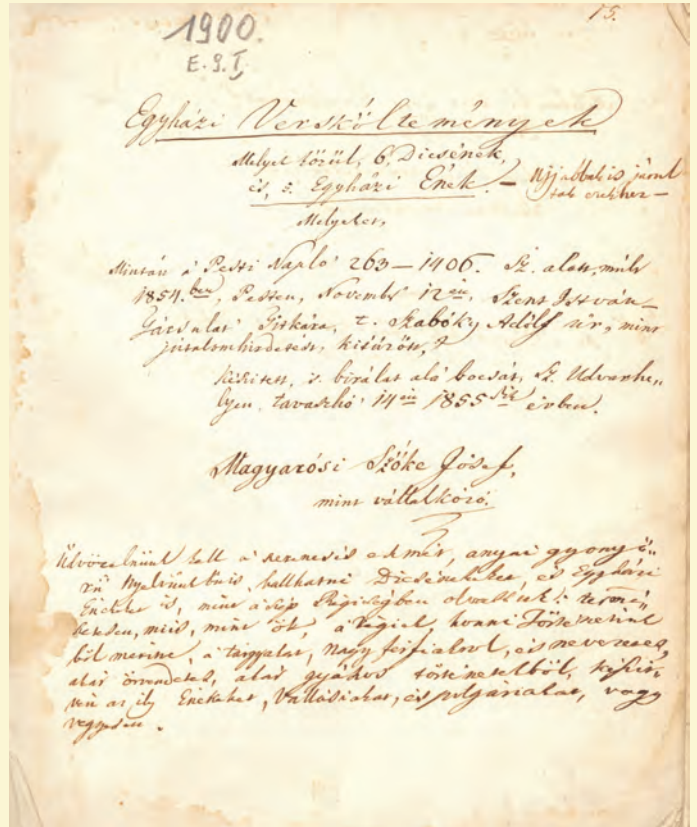 15.
1900.
E. 9. I.
Egyházi Versköltemények
Melyek közül, 6, Dicsének,
és, 5. Egyházi Ének. – Ujjabbak is járul
tak ezekhez –
Melyeket,
Mintán a' Pesti Napló' 263–1406. Sz. alatt, múlt
1854.ben, Pesten, Novembr 12én, Szent István–
Társulat' Titkára, t. Szabóky Adolf úr, mint
jutalomhirdetést, kitűzött,
készített, 's birálat alá bocsát, Sz. Udvarhe„
lyen, tavaszhó' 14én 1855dik évben.
Magyarósi Szőke Jósef,
mint vállalkozó.
kell a' nemesis anyai gyönyö„
rű Nyelvünkbnis, hallhatni Dicsénekeket, és Egyházi
Éneket is, mint a' szép Régiségben
mint ők, a' honni Történetünk
ből a' tárgyalat, nagy férfiakrol, és nevezetes,
akár örvendetes, akár gyászos történetekből,
az ily Énekeket, Vallásiakat, és polgáriakat, vagy
vegyesen.